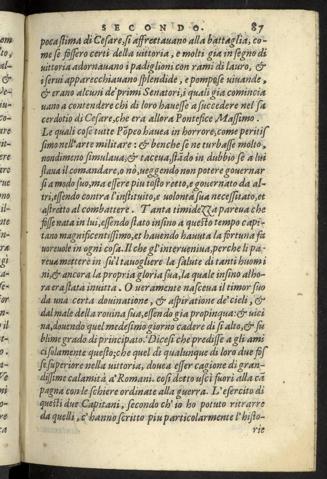 SECONDO. 87
poca stima di Cesare, si affrettauano alla battaglia, co-
me se fossero certi della vittoria, e molti gia in segno di
vittoria adornauano i padiglioni con rami di lauro, &
i serui apparecchiauano splendide, e pompose viuande,
& erano alcuni de' primi Senatori, i quali gia comincia
uano a contendere chi di loro hauesse a succedere nel sa
cerdotio di Cesare, che era allora Pontefice Massimo.
Le quali cose tutte Põpeo hauea in horrore, come peritis
simo nell'arte militare: & benche se ne turbasse molto,
nondimeno simulaua; & taceua, stãdo in dubbio se a lui
staua il comandare, o nò, ueggendo non potere gouernar
si a modo suo, ma essere piu tosto retto, e gouernato da al-
tri, essendo contra l'instituto, e volontà sua necessitato, et
astretto al combattere. Tanta timidezza pareua che
fosse nata in lui, essendo stato insino a questo tempo capi-
tano magnificentissimo, et hauendo hauuta la fortuna fa
uoreuole in ogni cosa. Il che gl'interueniua, perche li pa-
reua mettere in su'l tauogliere la salute di tanti huomi
ni, & ancora la propria gloria sua, la quale insino allho-
ra era stata inuitta. O ueramente nasceua il timor suo
da una certa diuinatione, & aspiratione de' cieli, &
dal male della rouina sua, essendo gia propinqua: & uici
na, douendo quel medesimo giorno cadere di si alto, & su
blime grado di principato. Dicesi che predisse a gli ami
ci solamente questo; che quel di qualunque di loro due fos
se superiore nella uittoria, douea esser cagione di gran-
dissime calamità a' Romani. cosi detto usci fuori alla cã
pagna con le schiere ordinate alla guerra. L'esercito di
questi due Capitani, secondo ch' io ho potuto ritrarre
da quelli, c' hanno scritto piu particolarmente l'histo-
rie